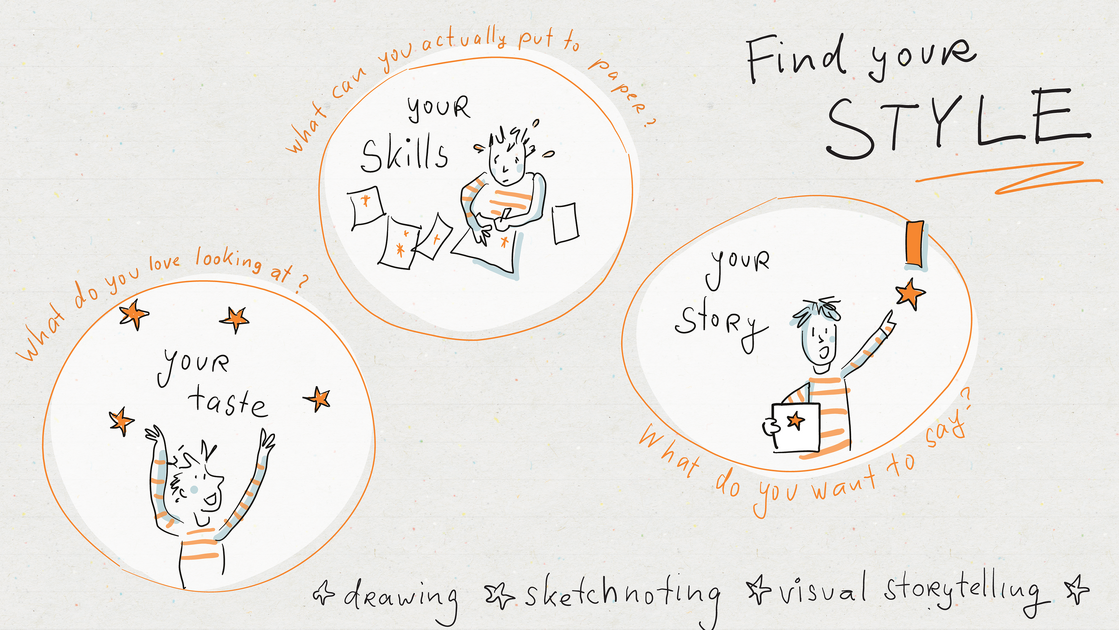 Find your
STYLE
What can you actually put to paper?
your
Skills
What do you love looking at?
your
taste
your
story
What do you want to say?
drawing sketchnoting visual storytelling